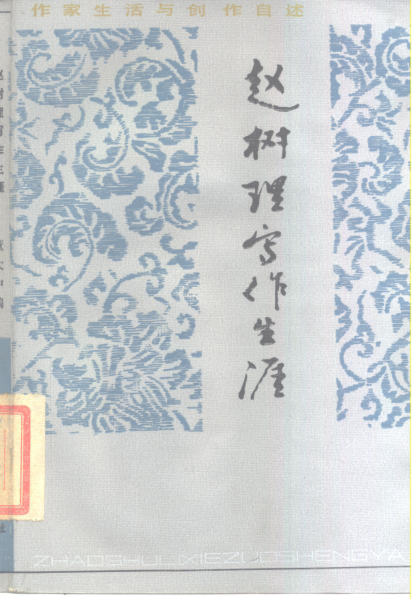 作家生活与创作自述
赵树理写作生涯
赵树理写作生涯
ZHAOSHULIXIEZUOSHENGYA
社